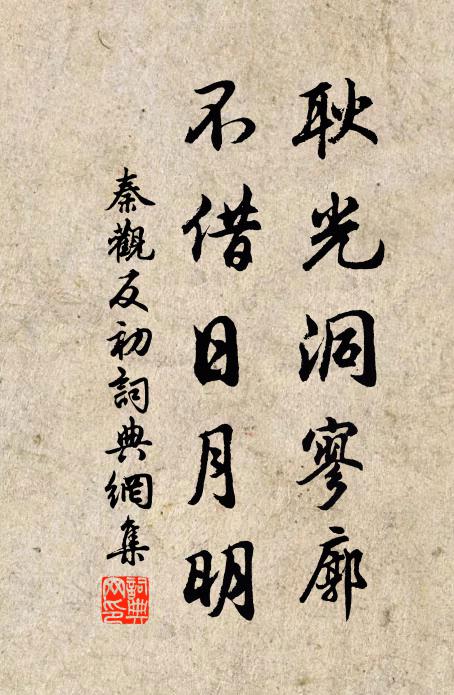 耿光洞寥廓
不借日月明
秦觀反初詞典網集
詞典
网印